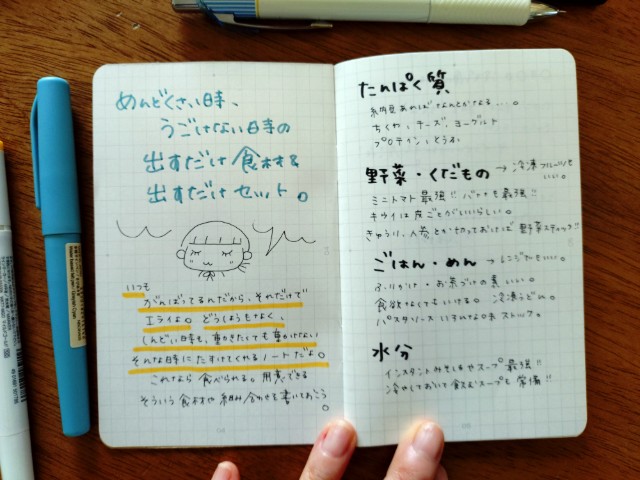 めんどくさい時、
うごけない日の
出すだけ食材&
出すだけセット。
いつも
がんばってるんだから、それだけで
エライよ。どうしようもなく、
しんどい日も、動きたくても動けない
そんな時にたすけてくれるノートだよ。
これなら食べられる。用意できる
そういう食材や組み合わせを書いておこう。
たんぱく質
納豆あればなんとかなる...。
ちくわ、チーズ、ヨーグルト
プロテイン、とうふ
野菜・くだもの → 冷凍フルーツも
いい。
ミニトマト最強!! バナナも最強!!
キウイは皮ごとがいいらしい。
きゅうり、人参とか切っておけば野菜スティック!!
ごはん・めん → レンジでもいい
ふりかけ・お茶づけの素いい。
食欲なくてもいける。冷凍うどん。
パスタソース いすれな味 ストック。
水分
インスタントみそしるやスープ最強!!
冷やしておいて飲むスープも常備!!